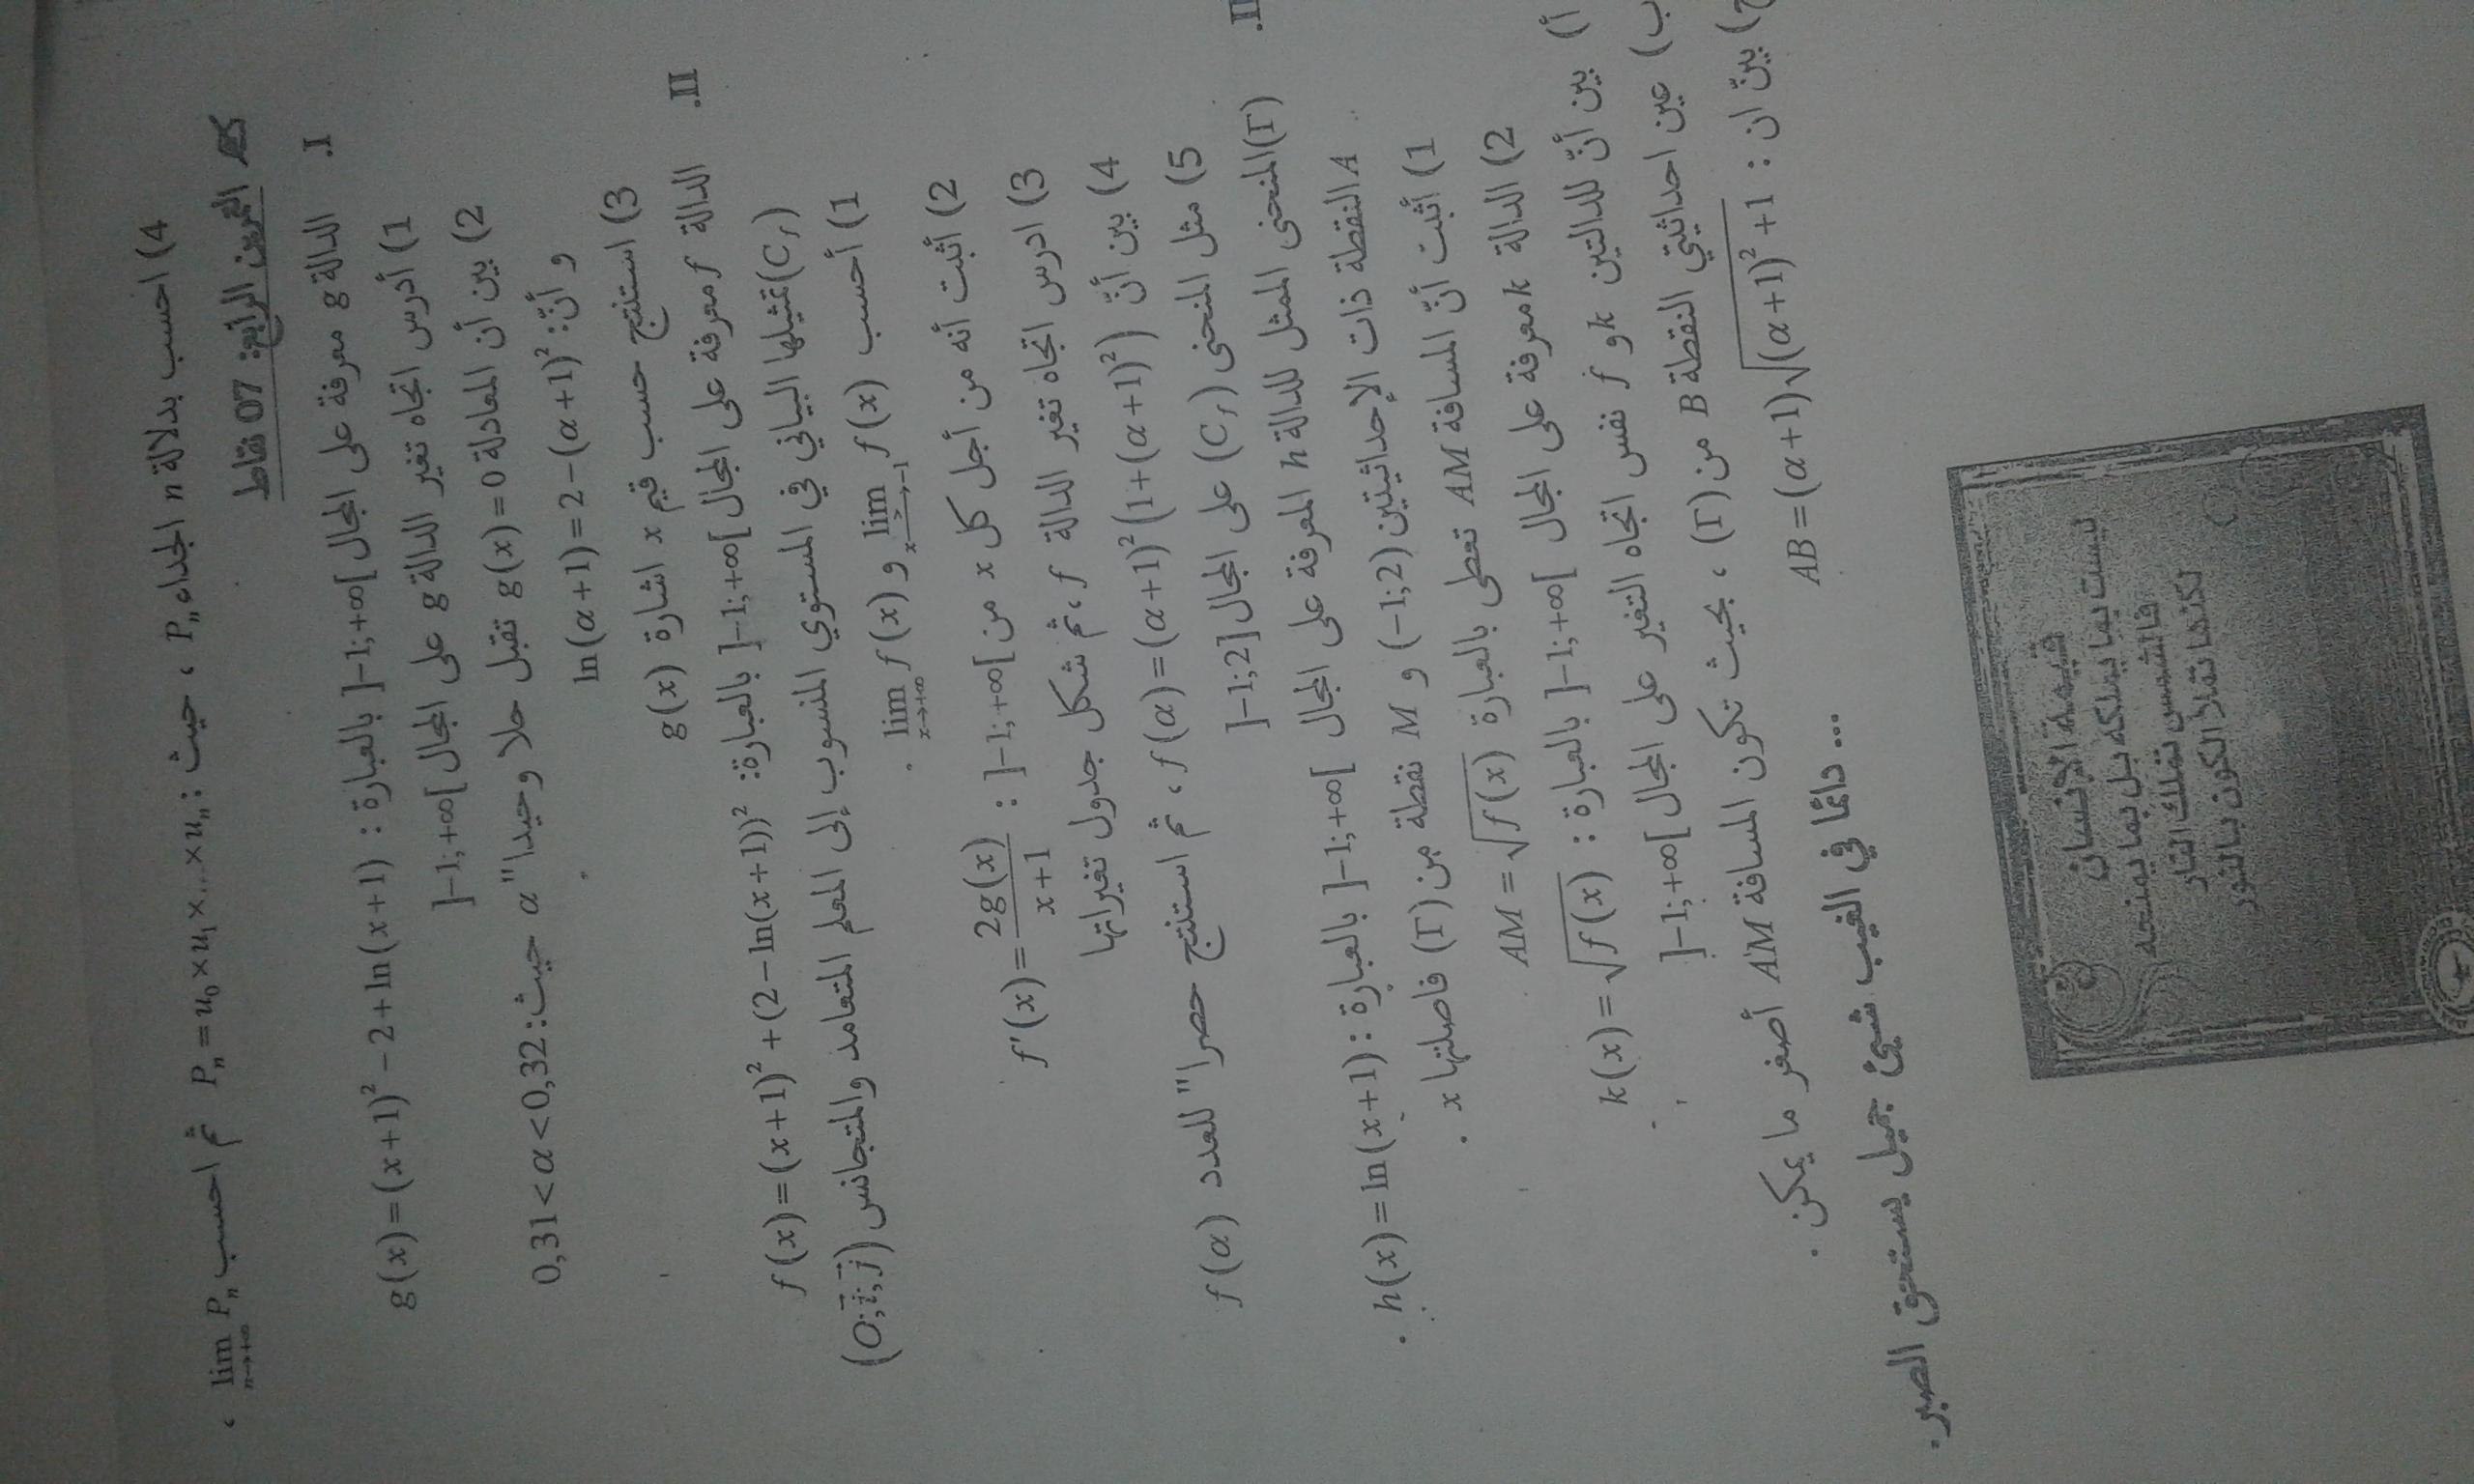 4) احسب بدلالة n الجداء P_n ، حيث : P_n = u_0 × u_1 × ... × u_n ثم احسب lim_{n→+∞} P_n ،
التمرين الرابع: 07 نقاط
I. الدالة g معرفة على المجال ]-1;+∞[ بالعبارة : g(x) = (x+1)² - 2 + ln(x+1)
1) أدرس اتجاه تغير الدالة g على المجال ]-1;+∞[
2) بين أن المعادلة g(x) = 0 تقبل حلا وحيدا" α حيث: 0,31 < α < 0,32
و أنّ: ln(α+1) = 2 - (α+1)²
3) استنتج حسب قيم x اشارة g(x)
II. الدالة f معرفة على المجال ]-1;+∞[ بالعبارة: f(x) = (x+1)² + (2 - ln(x+1))²
(C_f) تمثيلها البياني في المستوي المنسوب إلى المعلم المتعامد والمتجانس (O;i;j)
1) أحسب lim_{x→-1} f(x) و lim_{x→+∞} f(x) .
2) أثبت أنه من أجل كل x من ]-1;+∞[ : f'(x) = 2g(x)/(x+1)
3) ادرس اتجاه تغير الدالة f ، ثم شكل جدول تغيراتها
4) بين أنّ f(α) = (α+1)²(1+(α+1)²) ، ثم استنتج حصرا" للعدد f(α)
5) مثل المنحنى (C_f) على المجال ]-1;2]
II. (Γ) المنحنى الممثل للدالة h المعرفة على المجال ]-1;+∞[ بالعبارة : h(x) = ln(x+1) .
A النقطة ذات الإحداثيتين (-1;2) و M نقطة من (Γ) فاصلتها x .
1) أثبت أنّ المسافة AM تعطى بالعبارة AM = √f(x)
2) الدالة k معرفة على المجال ]-1;+∞[ بالعبارة : k(x) = √f(x) .
أ) بين أنّ للدالتين k و f نفس اتجاه التغير على المجال ]-1;+∞[
ب) عين احداثيتي النقطة B من (Γ) ، بحيث تكون المسافة AM أصغر ما يمكن .
ج) بينّ ان : AB = (α+1)√((α+1)²+1)
... دائما في الغيب شيئ جميل يستحق الصبر.
قيمة الإنسان
ليست بما يملكه بل بما يمنحه
فالشمس تملك النار
لكنها تملأ الكون بالنور